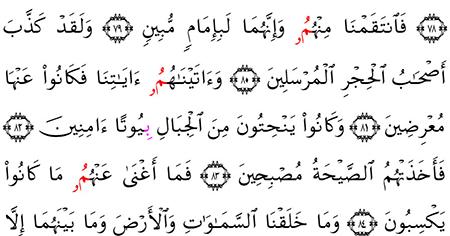 ﴿٧٨﴾ فَٱنتَقَمۡنَا مِنۡهُمُۥ وَإِنَّهُمَا لَبِإِمَامٖ مُّبِينٖ ﴿٧٩﴾ وَلَقَدۡ كَذَّبَ
أَصۡحَٰبُ ٱلۡحِجۡرِ ٱلۡمُرۡسَلِينَ ﴿٨٠﴾ وَءَاتَيۡنَٰهُمُۥ ءَايَٰتِنَا فَكَانُواْ عَنۡهَا
مُعۡرِضِينَ ﴿٨١﴾ وَكَانُواْ يَنۡحِتُونَ مِنَ ٱلۡجِبَالِ بِيُوتًا ءَامِنِينَ ﴿٨٢﴾
فَأَخَذَتۡهُمُ ٱلصَّيۡحَةُ مُصۡبِحِينَ ﴿٨٣﴾ فَمَا أَغۡنَىٰ عَنۡهُمُۥ مَا كَانُواْ
يَكۡسِبُونَ ﴿٨٤﴾ وَمَا خَلَقۡنَا ٱلسَّمَٰوَٰتِ وَٱلۡأَرۡضَ وَمَا بَيۡنَهُمَا إِلَّا